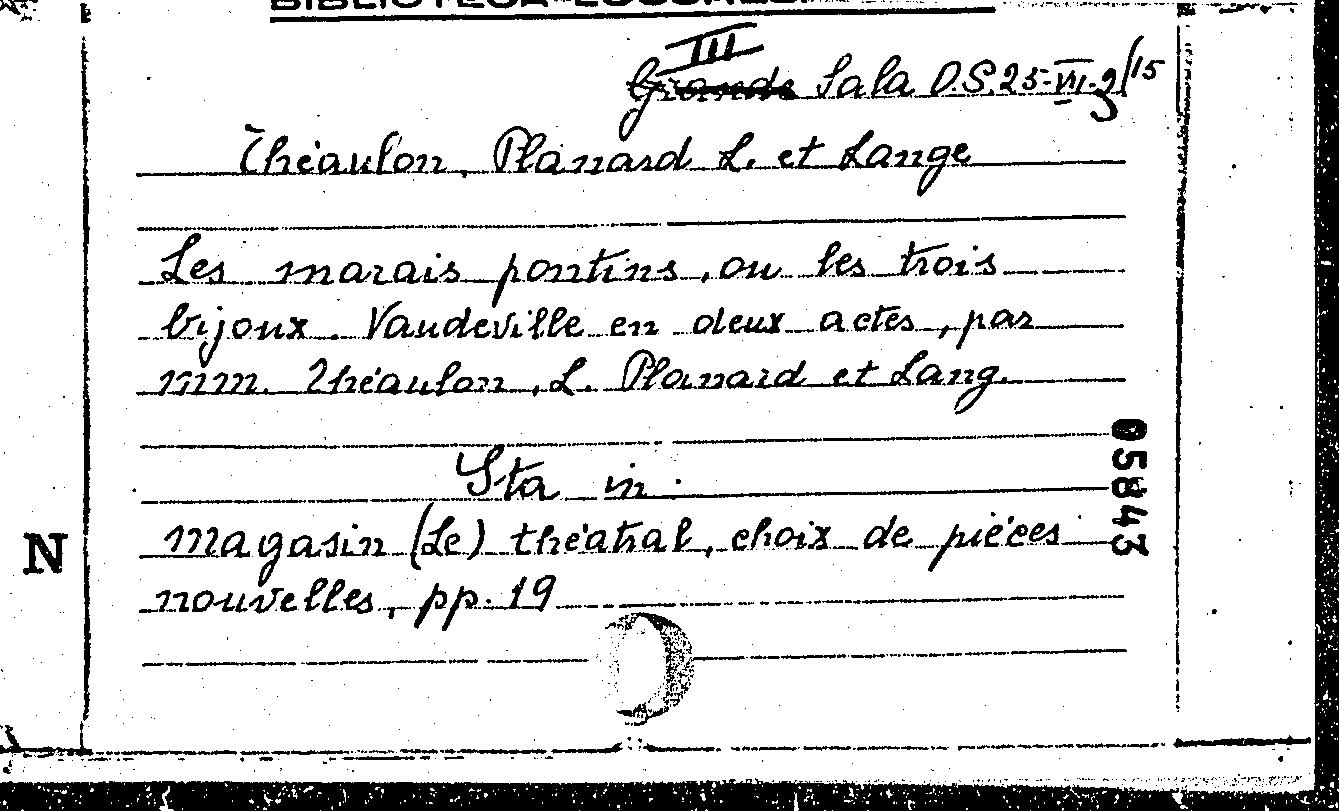 III
Grande Sala D.S. 25-VII-9/15
Théaulon, Planard L. et Lange
Les marais pontins, ou les trois
bijoux. Vaudeville en deux actes, par
mm. Théaulon, L. Planard et Lang.
Sta in:
Magasin (Le) théatral, choix de piéces
nouvelles, pp. 19
05843
N